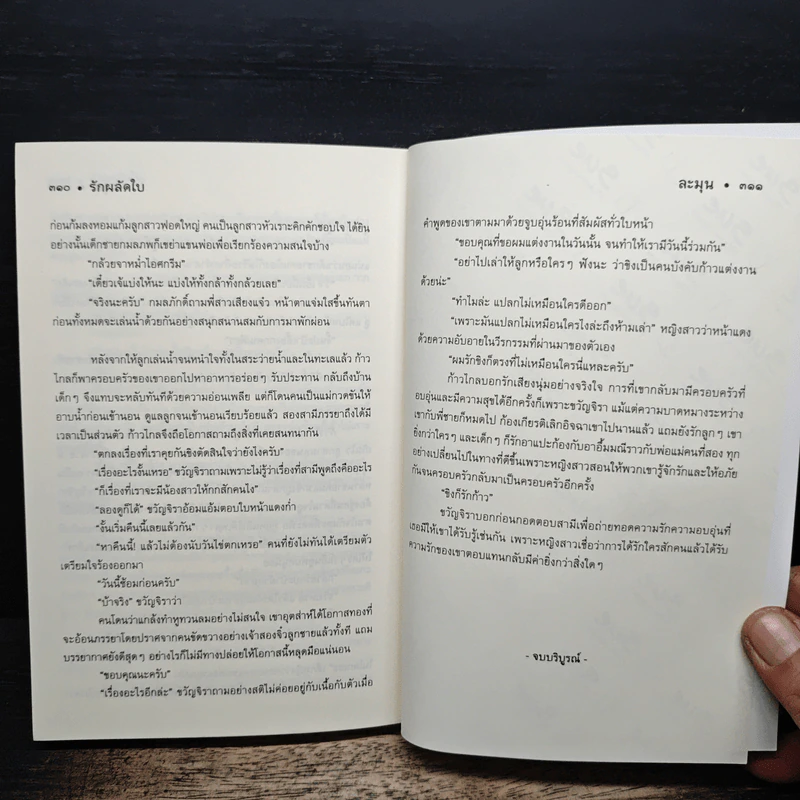 ๓๑๐ • รักผลัดใบ
ก่อนก้มลงหอมแก้มลูกสาวฟอดใหญ่ คนเป็นลูกสาวหัวเราะคิกคักชอบใจ ได้ยิน
อย่างนั้นเด็กชายกมลภพก็เขย่าแขนพ่อเพื่อเรียกร้องความสนใจบ้าง
“กล้วยจาหม่ำไอศกรีม”
“เดี๋ยวเจ้แบ่งให้นะ แบ่งให้ทั้งกล้าทั้งกล้วยเลย”
“จริงนะครับ” กมลภักดิ์ถามพี่สาวเสียงแจ๋ว หน้าตาแจ่มใสขึ้นทันตา
ก่อนทั้งหมดจะเล่นน้ำด้วยกันอย่างสนุกสนานสมกับการมาพักผ่อน
หลังจากให้ลูกเล่นน้ำจนหนำใจทั้งในสระว่ายน้ำและในทะเลแล้ว ก้าว
ไกลก็พาครอบครัวของเขาออกไปหาอาหารอร่อยๆ รับประทาน กลับถึงบ้าน
เด็กๆ จึงแทบจะหลับทันทีด้วยความอ่อนเพลีย แต่ก็โดนคนเป็นแม่กวดขันให้
อาบน้ำก่อนเข้านอน ดูแลลูกจนเข้านอนเรียบร้อยแล้ว สองสามีภรรยาถึงได้มี
เวลาเป็นส่วนตัว ก้าวไกลจึงถือโอกาสถามถึงสิ่งที่เคยสนทนากัน
“ตกลงเรื่องที่เราคุยกันชิงตัดสินใจว่ายังไงครับ”
“เรื่องอะไรงั้นเหรอ” ขวัญจิราถามเพราะไม่รู้ว่าเรื่องที่สามีพูดถึงคืออะไร
“ก็เรื่องที่เราจะมีน้องสาวให้กกสักคนไง”
“ลองดูก็ได้” ขวัญจิราอ้อมแอ้มตอบใบหน้าแดงก่ำ
“งั้นเริ่มคืนนี้เลยแล้วกัน”
“หาคืนนี้! แล้วไม่ต้องนับวันไข่ตกเหรอ” คนที่ยังไม่ทันได้เตรียมตัว
เตรียมใจร้องออกมา
“วันนี้ซ้อมก่อนครับ”
“บ้าจริง” ขวัญจิราว่า
คนโดนว่าแกล้งทำหูทวนลมอย่างไม่สนใจ เขาอุตส่าห์ได้โอกาสทองที่
จะอ้อนภรรยาโดยปราศจากคนขัดขวางอย่างเจ้าสองจิ๋วลูกชายแล้วทั้งที แถม
บรรยากาศยังดีสุดๆ อย่างไรก็ไม่มีทางปล่อยให้โอกาสนี้หลุดมือแน่นอน
“ขอบคุณนะครับ”
“เรื่องอะไรอีกล่ะ” ขวัญจิราถามอย่างสติไม่ค่อยอยู่กับเนื้อกับตัวเมื่อ
ละมุน • ๓๑๑
คำพูดของเขาตามมาด้วยจูบอุ่นร้อนที่สัมผัสทั่วใบหน้า
“ขอบคุณที่ขอผมแต่งงานในวันนั้น จนทำให้เรามีวันนี้ร่วมกัน”
“อย่าไปเล่าให้ลูกหรือใครๆ ฟังนะ ว่าชิงเป็นคนบังคับก้าวแต่งงาน
ด้วยน่ะ”
“ทำไมล่ะ แปลกไม่เหมือนใครดีออก”
“เพราะมันแปลกไม่เหมือนใครไงล่ะถึงห้ามเล่า” หญิงสาวว่าหน้าแดง
ด้วยความอับอายในวีรกรรมที่ผ่านมาของตัวเอง
“ผมรักชิงก็ตรงที่ไม่เหมือนใครนี่แหละครับ”
ก้าวไกลบอกรักเสียงนุ่มอย่างจริงใจ การที่เขากลับมามีครอบครัวที่
อบอุ่นและมีความสุขได้อีกครั้งก็เพราะขวัญจิรา แม้แต่ความบาดหมางระหว่าง
เขากับพี่ชายก็หมดไป ก้องเกียรติเลิกอิจฉาเขาไปนานแล้ว แถมยังรักลูกๆ เขา
ยิ่งกว่าใครๆ และเด็กๆ ก็รักอาแปะก้องกับอาอึ้มมณีราวกับพ่อแม่คนที่สอง ทุก
อย่างเปลี่ยนไปในทางที่ดีขึ้นเพราะหญิงสาวสอนให้พวกเขารู้จักรักและให้อภัย
กันจนครอบครัวกลับมาเป็นครอบครัวอีกครั้ง
“ชิงก็รักก้าว”
ขวัญจิราบอกก่อนกอดตอบสามีเพื่อถ่ายทอดความรักความอบอุ่นที่
เธอมีให้เขาได้รับรู้เช่นกัน เพราะหญิงสาวเชื่อว่าการได้รักใครสักคนแล้วได้รับ
ความรักของเขาตอบแทนกลับมีค่ายิ่งกว่าสิ่งใดๆ
- จบบริบูรณ์ -